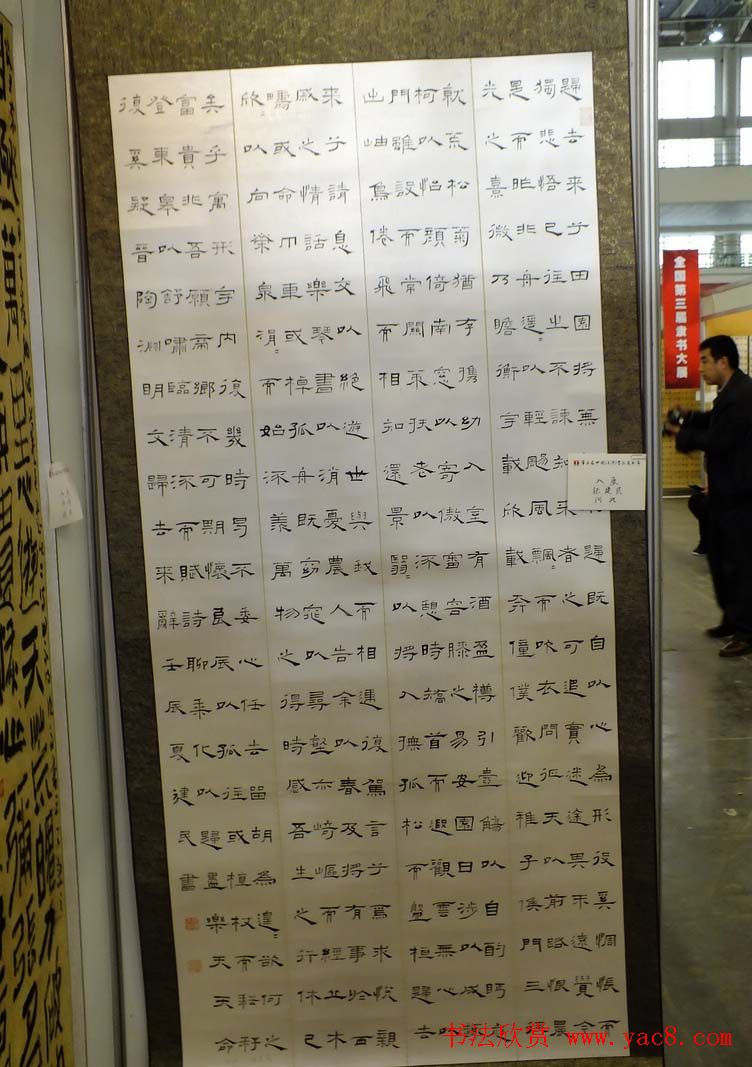 歸去来兮田園將蕪歸既自以心為形役奚惆悵而
獨悲悟已往之不諫知来者之可追實迷途其未遠覺今
是而昨非舟遥〻以輕颺風飄〻而吹衣問征夫以前路恨晨
光之熹微乃瞻衡宇載欣載奔僮僕歡迎稚子候門三
就荒松菊猶存攜幼入室有酒盈樽引壺觴以自酌眄
柯以怡顏倚南窓以寄傲審容膝之易安園日涉以成
門雖設而常關策扶老以流憩時矯首而遐觀雲無心以
出岫鳥倦飛而知還景翳〻以將入撫孤松而盤桓歸去
来兮請息交以絕遊世與我而相違復駕言兮焉求悅親
戚之情話樂琴書以消憂農人告余以春及將有事於西
疇或命巾車或棹孤舟既窈窕以尋壑亦崎嶇而經丘木
欣〻以向榮泉涓〻而始流羨萬物之得時感吾生之行休已
矣乎寓形宇内復幾時曷不委心任去留胡為遑〻欲何之
富貴非吾願帝鄉不可期懷良辰以孤往或植杖而耘耔
登東皋以舒嘯臨清流而賦詩聊乘化以歸盡樂天天命
復奚疑晉陶淵明文歸去来辭壬辰夏建民書
入展
张建民
河北
全国第三届隶书大展
书法欣赏 www.yac8.com